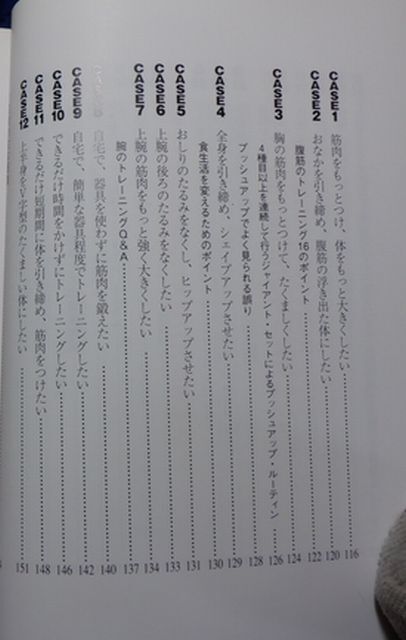 CASE1 筋肉をもっとつけ、体をもっと大きくしたい 116
CASE2 おなかを引き締め、腹筋の浮き出た体にしたい 120
腹筋のトレーニング16のポイント 122
CASE3 胸の筋肉をもっとつけて、たくましくしたい 124
4種目以上を連続して行うジャイアント・セットによるプッシュアップ・ルーティン 126
プッシュアップでよく見られる誤り 128
CASE4 全身を引き締め、シェイプアップさせたい 129
食生活を変えるためのポイント 130
CASE5 おしりのたるみをなくし、ヒップアップさせたい 131
CASE6 上腕の後ろのたるみをなくしたい 133
CASE7 上腕の筋肉をもっと強く大きくしたい 134
腕のトレーニングQ&A 137
CASE8 自宅で、器具を使わずに筋肉を鍛えたい 140
CASE9 自宅で、簡単な器具程度でトレーニングしたい 142
CASE10 できるだけ時間をかけずにトレーニングしたい 146
CASE11 できるだけ短期間に体を引き締め、筋肉をつけたい 148
CASE12 上半身をV字型のたくましい体にしたい 151